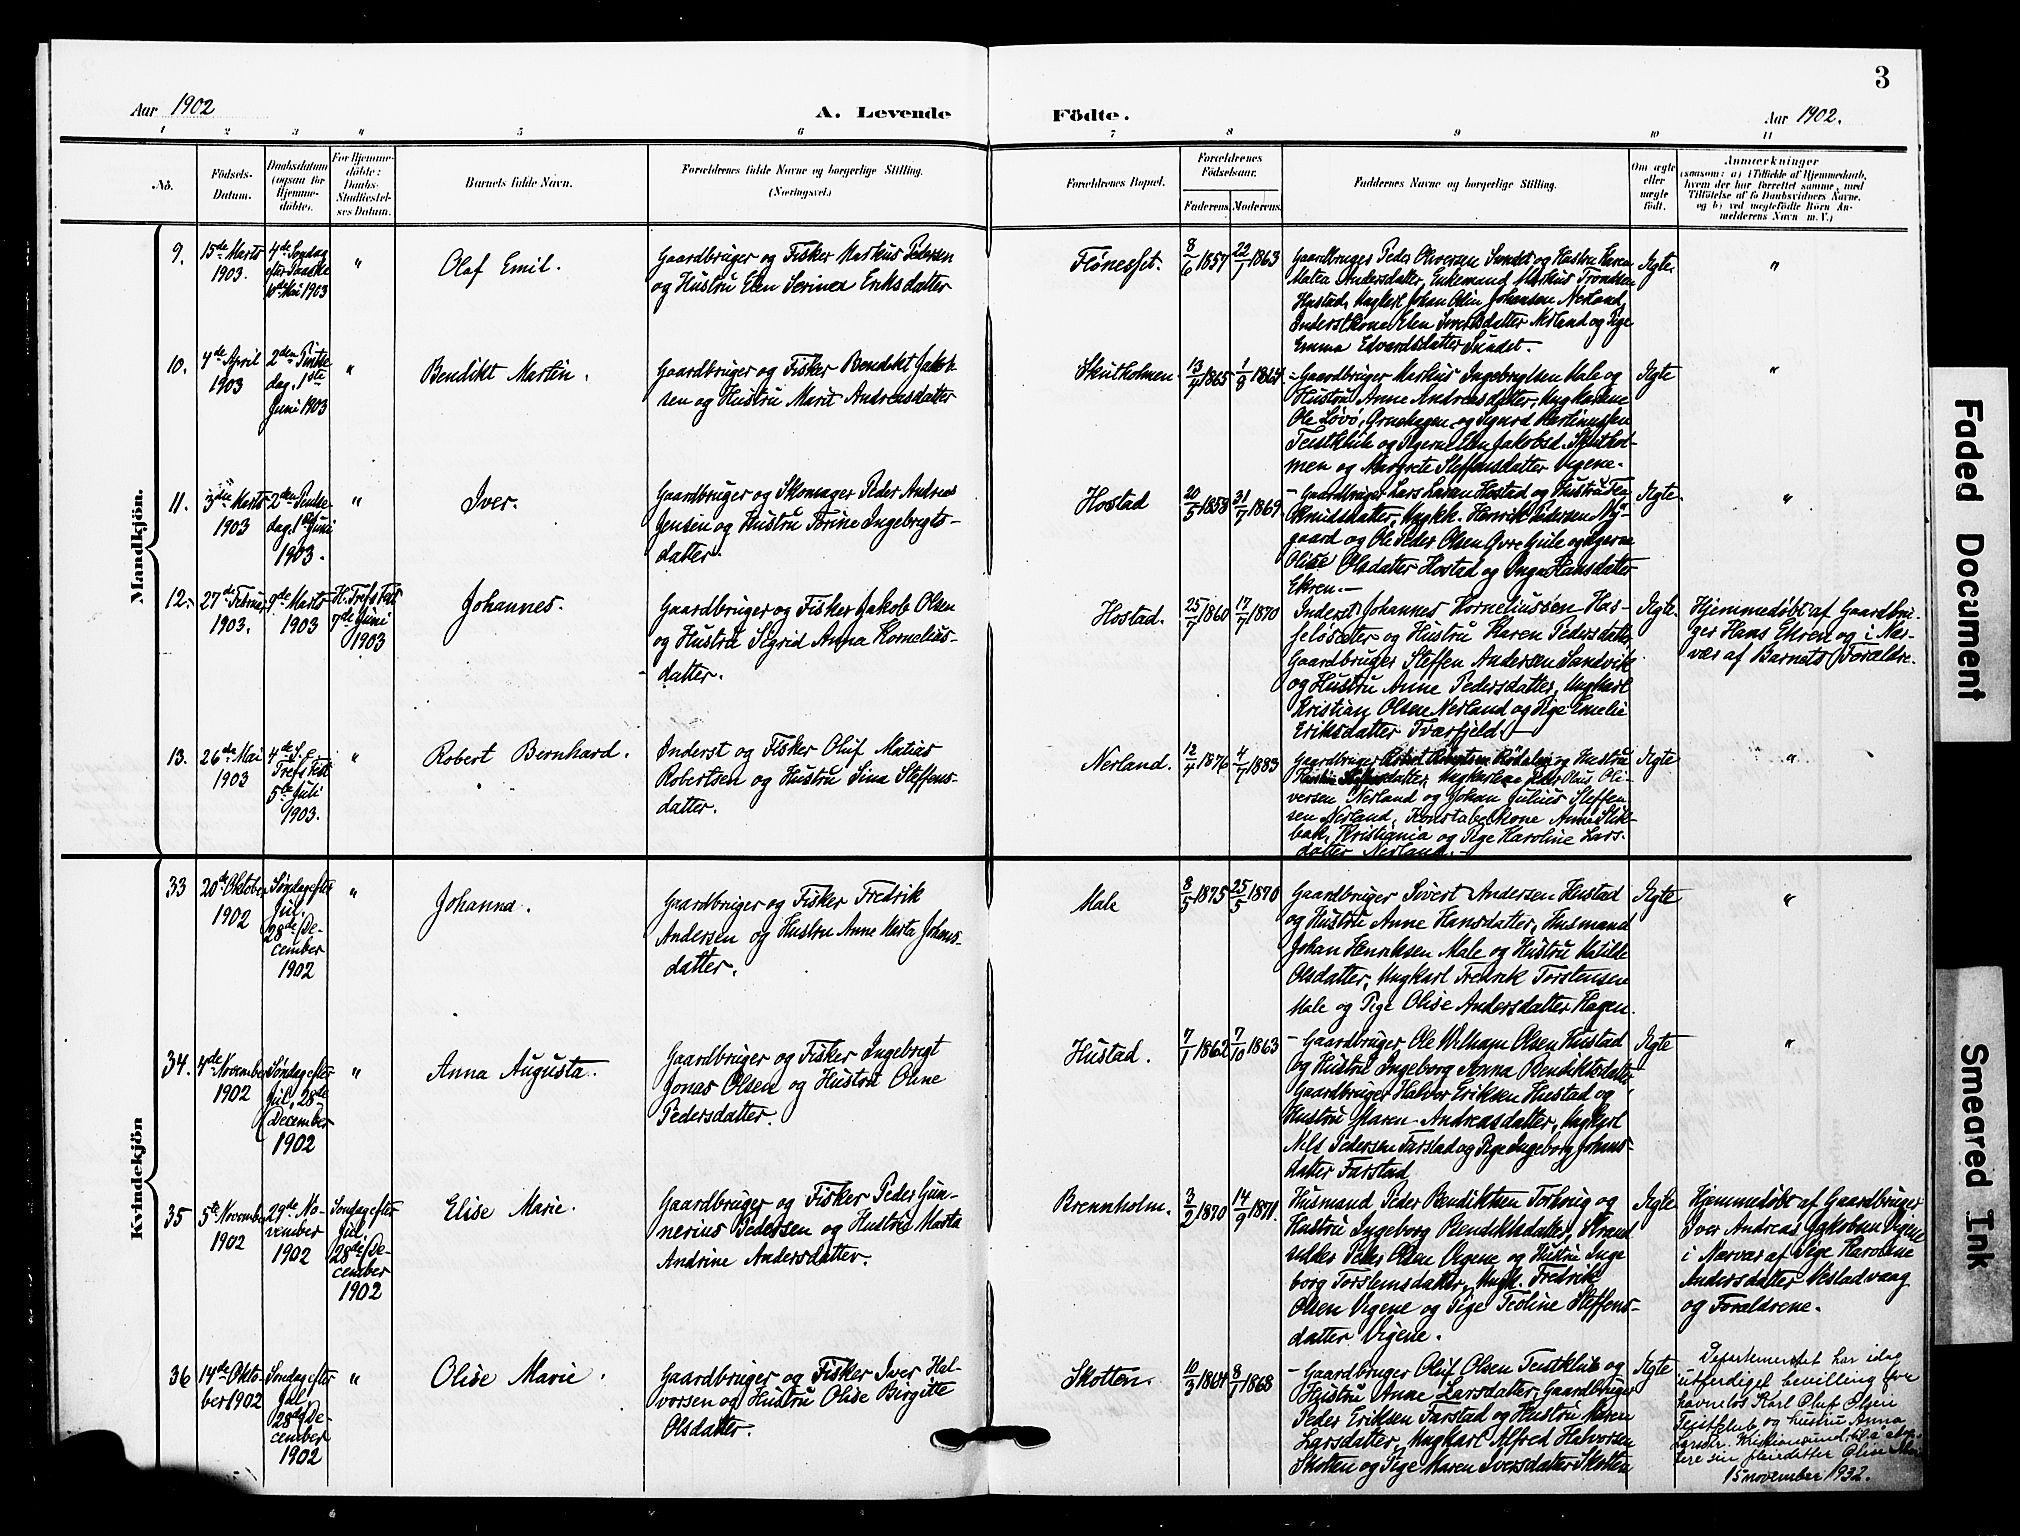 3
Aar 1902
A. Levende
Födte.
Aar 1902.
1 2 3 4 5 6 7 8 9 10 11
No.
Födsels-
Datum.
Daabsdatum
(ogsaa for
Hjemme-
döbte).
For Hjemme-
döbte:
Daabs-
Stadfæstel-
ses Datum.
Barnets fulde Navn.
Forældrenes fulde Navne og borgerlige Stilling.
(Næringsvei.)
Forældrenes Bopæl.
Forældrenes
Födselsaar.
Faderens.
Moderens.
Faddernes Navne og borgerlige Stilling.
Om ægte
eller
uægte
født.
Anmærkninger
(saasom: a) i Tilfælde af Hjemmedaab,
hvem der har forrettet samme, med
Tilföielse af to Daabsvidners Navne,
og b) ved uægtefødte Børn An-
melderens Navn m. V.)
Mandkjön.
9.
15de Marts
1903.
4de Søndag
efter Paaske
10de Mai 1903
"
Olaf Emil.
Gaardbruger og Fisker Markus Pedersen
og Hustru Elen Serinea Eriksdatter
Flønesset.
8/6 1857
22/1 1863
Gaardbruger Peder Oliversen Sandet og Hustru Karen
Matea Andersdatter, Enkemand Markus Trondsen
Hustad, Ungkarl Johan Olin Johansen Nerland,
Inderstkone Elen Sivertsdatter Nerland og Pige
Emma Edvardsdatter Sandet.
Ægte
"
10.
4de April
1903
2den Pintse
dag. 1ste
Juni 1903
"
Bendikt Martin.
Gaardbruger og Fisker Bendikt Jakob
sen og Hustru Marit Andreasdatter
Skutholmen
13/4 1865
1/8 1864
- Gaardbruger Markus Ingebrigtsen Male og
Hustru Anne Andreasdatter, Ungkarlene
Ole Løvø, Gruehagen og Sigurd Martinussen
Teistklub og Pigerne Elen Jakobsd. Skuthol-
men og Margrete Steffensdatter Vigene.
Ægte
"
11.
3die Marts
1903
2den Pintse
dag. 1ste Juni
1903.
"
Iver.
Gaardbruger og Skomager Peder Andreas
Jensen og Hustru Torine Ingebrigts-
datter.
Hostad
20/5 1858
31/7 1869
- Gaardbruger Lars Larsen Hostad og Hustru Tea
Knudsdatter, Ungk. Henrik Pedersen Ny-
gaard og Ole Peder Olsen Øvre Gule og Pigerne
Olise Olsdatter Hostad og Inga Hansdatter
Ekren.-
Ægte.
"
12.
27de Februar
1903.
9de Marts
1903
H. Tref. Fest
7de Juni
1903
Johannes.
Gaardbruger og Fisker Jakob Olsen
og Hustru Sigrid Anna Kornelius-
datter.
Hostad.
25/7 1860
17/7 1870
Inderst Johannes Korneliussen Has-
seløsæter og Hustru Karen Pedersdatter,
Gaardbruger Steffen Andersen Sandvik
og Hustru Anne Pedersdatter, Ungkarl
Kristian Olsen Nerland og Pige Emelie
Eriksdatter Tverfjeld.
Ægte
Hjemmedøbt af Gaardbru-
ger Hans Ekren og i Nær-
vær af Barnets Forældre.
13.
26de Mai
1903
4de S. e.
Tref. Fest
5te Juli
1903.
"
Robert Bernhard.
Inderst og Fisker Oluf Matias
Robertsen og Hustru Sina Steffens-
datter.
Nerland.
12/4 1876
4/7 1883
Gaardbruger Robert Rødalen og Hustru
datter, Ungkarlene Peder Olaus Oli-
versen Nerland og Johan Julius Steffen
sen Nerland, Konstabelkone Anne Stik-
bak, Kristiania og Pige Karoline Lars-
datter Nerland.-
Ægte
"
Kvindekjön
33
20de Oktober
1902
Søndag efter
Jul.
28de De-
cember
1902
"
Johanna.
Gaardbruger og Fisker Fredrik
Andersen og Hustru Anne Marta Johans-
datter.
Male
8/5 1875
25/5 1870
Gaardbruger Sivert Andersen Hustad
og Hustru Anne Hansdatter, Husmand
Johan Henriksen Male og Hustru Matilde
Olsdatter, Ungkarl Fredrik Torstensen
Male og Pige Olise Andersdatter Hagen.
Ægte
"
34.
4de November
1902
Søndag efter
Jul, 28de
December
1902
"
Anna Augusta.
Gaardbruger og Fisker Ingebrigt
Jonas Olsen og Hustru Oline
Pedersdatter.
Hustad.
7/1 1862
7/10 1863
- Gaardbruger Ole Wilhelm Olsen Hustad
og Hustru Ingeborg Anna Bendiktsdatter
Gaardbruger Halvor Eriksen Hustad og
Hustru Maren Andreasdatter, Ungkarl
Nils Pedersen Farstad og Pige Ingeborg Johans-
datter Farstad
Ægte
"
35
5te November
1902
29de No-
vember
1902
Søndag efter
Jul,
28de De-
cember
1902
Elise Marie.
Gaardbruger og Fisker Peder Gun-
nerius Pedersen og Hustru Marta
Andrine Andersdatter.
Brennholm.
3/2 1870
14/9 1871.
Husmand Peder Bendiktsen Torhaug og
Hustru Ingeborg Bendiktsdatter, Strand
sidder Peder Olsen Vigene og Hustru Inge
borg Torstensdatter, Ungk. Fredrik
Olsen Vigene og Pige Teoline Steffens-
datter Vigene.
Ægte
Hjemmedøbt af Gaardbruger
Iver Andreas Jakobsen Vigene
i Nærvær af Pige Karoline
Andersdatter Vestadvaag
og Forældrene.
36
14de Okto-
ber 1902
Søndag efter
Jul,
28de De-
cember
1902
"
Olise Marie.
Gaardbruger og Fisker Iver Hal-
vorsen og Hustru Olise Birgitte
Olsdatter.
Skotten.
10/3 1864
8/1 1868
- Gaardbruger Oluf Olsen Teistklub og
Hustru Anne Larsdatter, Gaardbruger
Peder Eriksen Farstad og Hustru Maren
Larsdatter, Ungkarl Alfred Halvorsen
Skotten og Pige Maren Iversdatter Skotten
Ægte
Departementet har idag
utferdiget bevilling for
havnelos Karl Oluf Olsen
Teistklub og hustru Anna
Larsdtr. Kristiansund til å adop-
tere sin pleiedatter Olise Marie
15 november 1932.
Faded Document
Smeared Ink